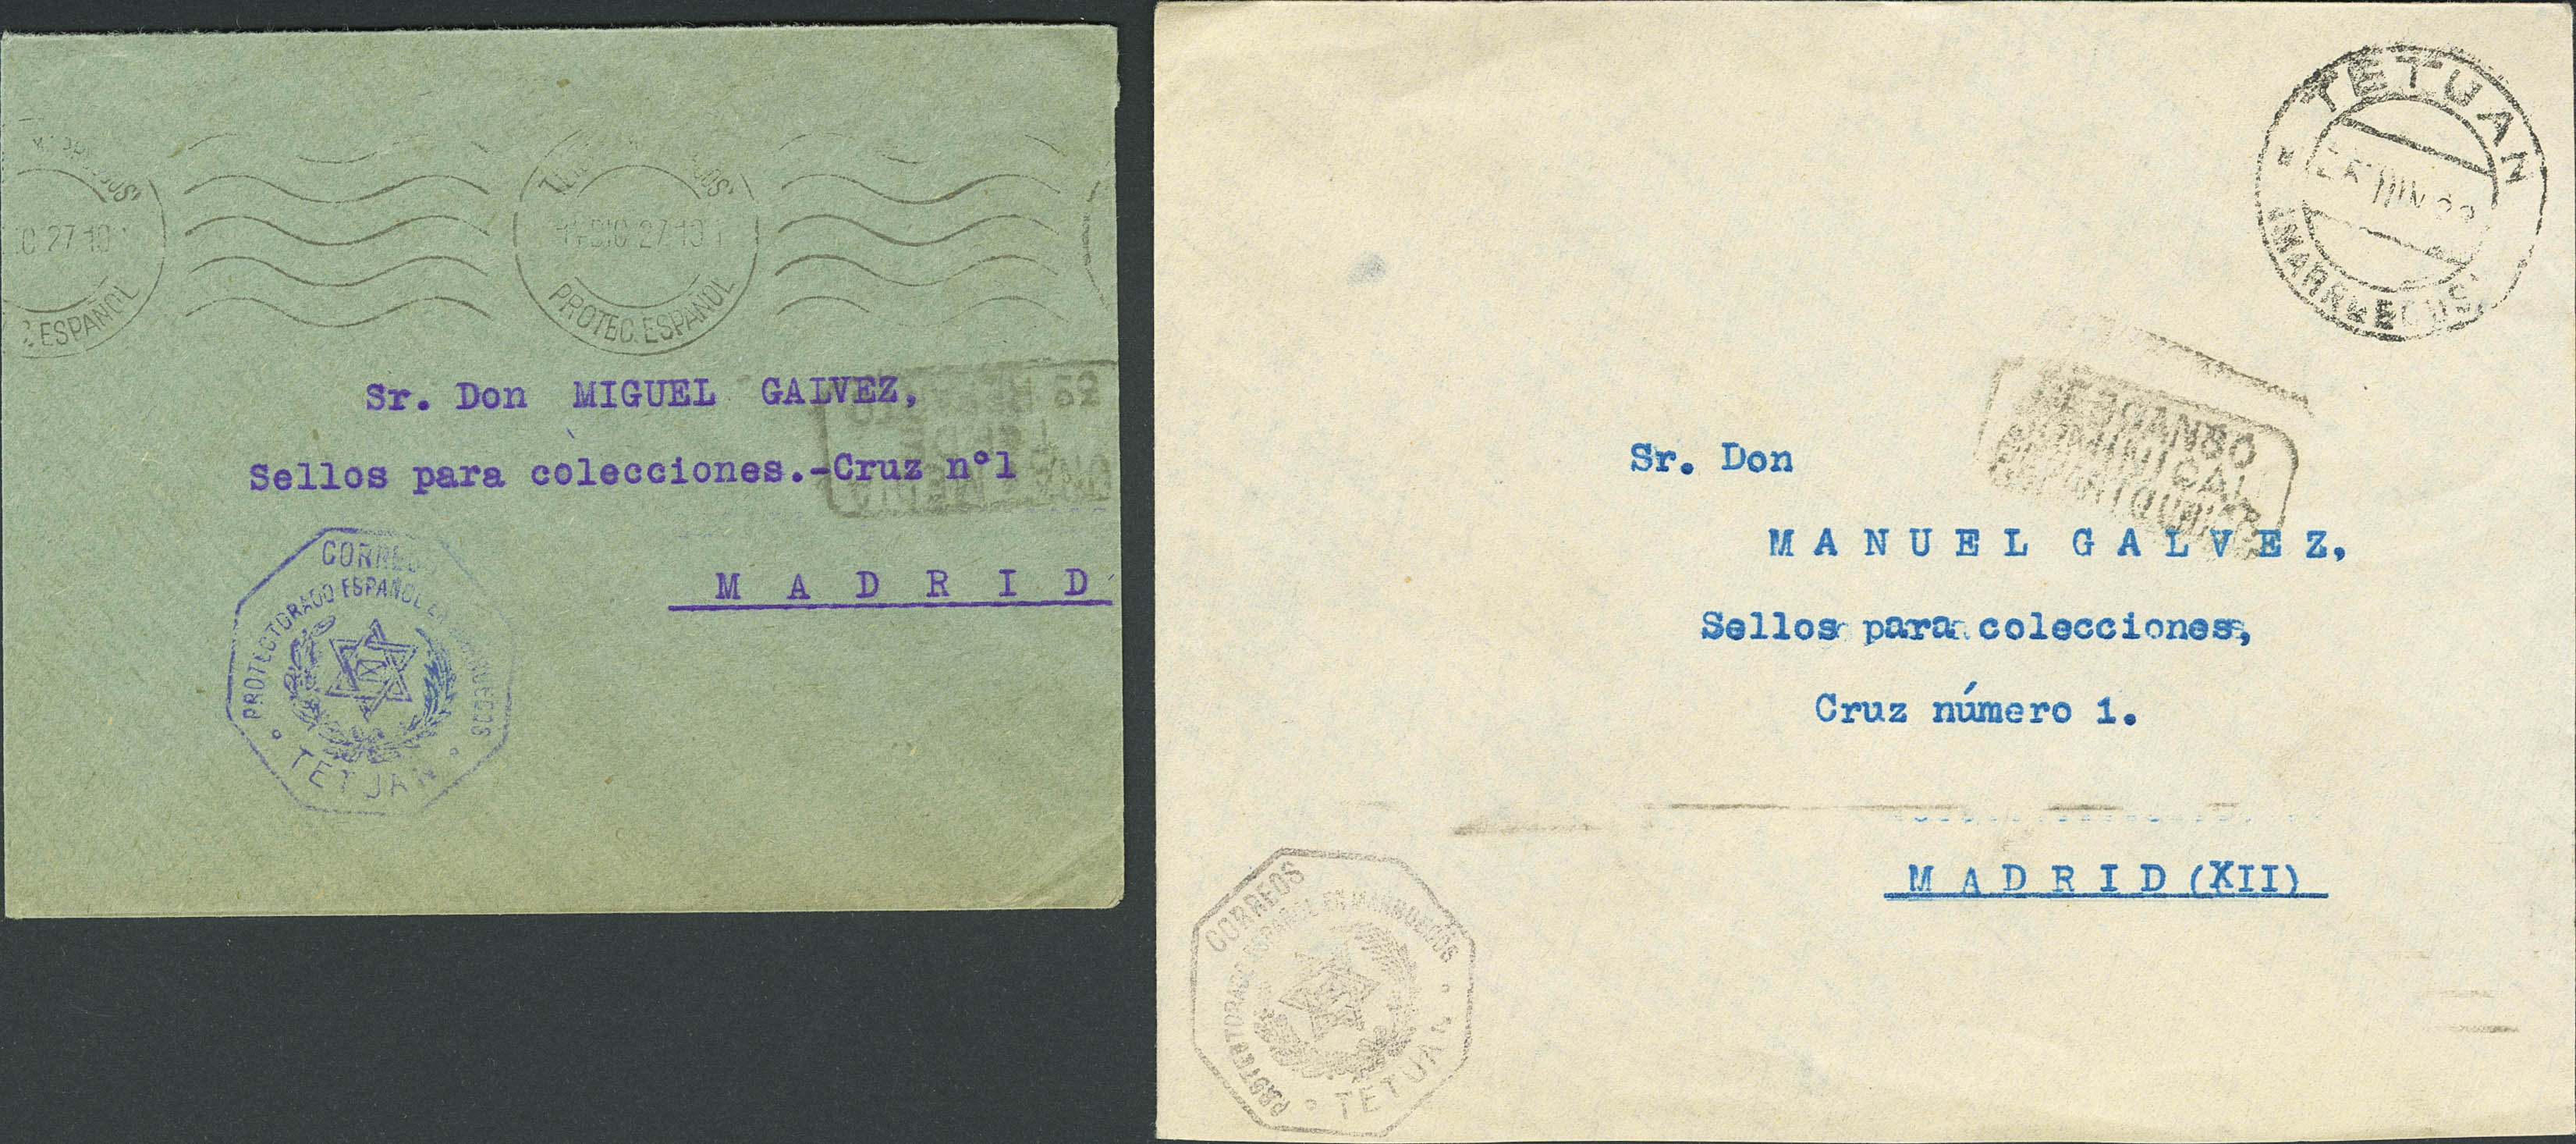 MARRUECOS
27 10
ESPAÑOL
DIC 27 10
PROTEC. ESPAÑOL
Sr. Don MIGUEL GALVEZ,
Sellos para colecciones.-Cruz nº1
M A D R I D
CORREOS
PROTECTORADO ESPAÑOL EN MARRUECOS
TETUAN
TETUAN
MARRUECOS
DESCANSO
DOMINICAL
Sr. Don
M A N U E L G A L V E Z,
Sellos para colecciones,
Cruz número 1.
M A D R I D (XII)
CORREOS
PROTECTORADO ESPAÑOL EN MARRUECOS
TETUAN